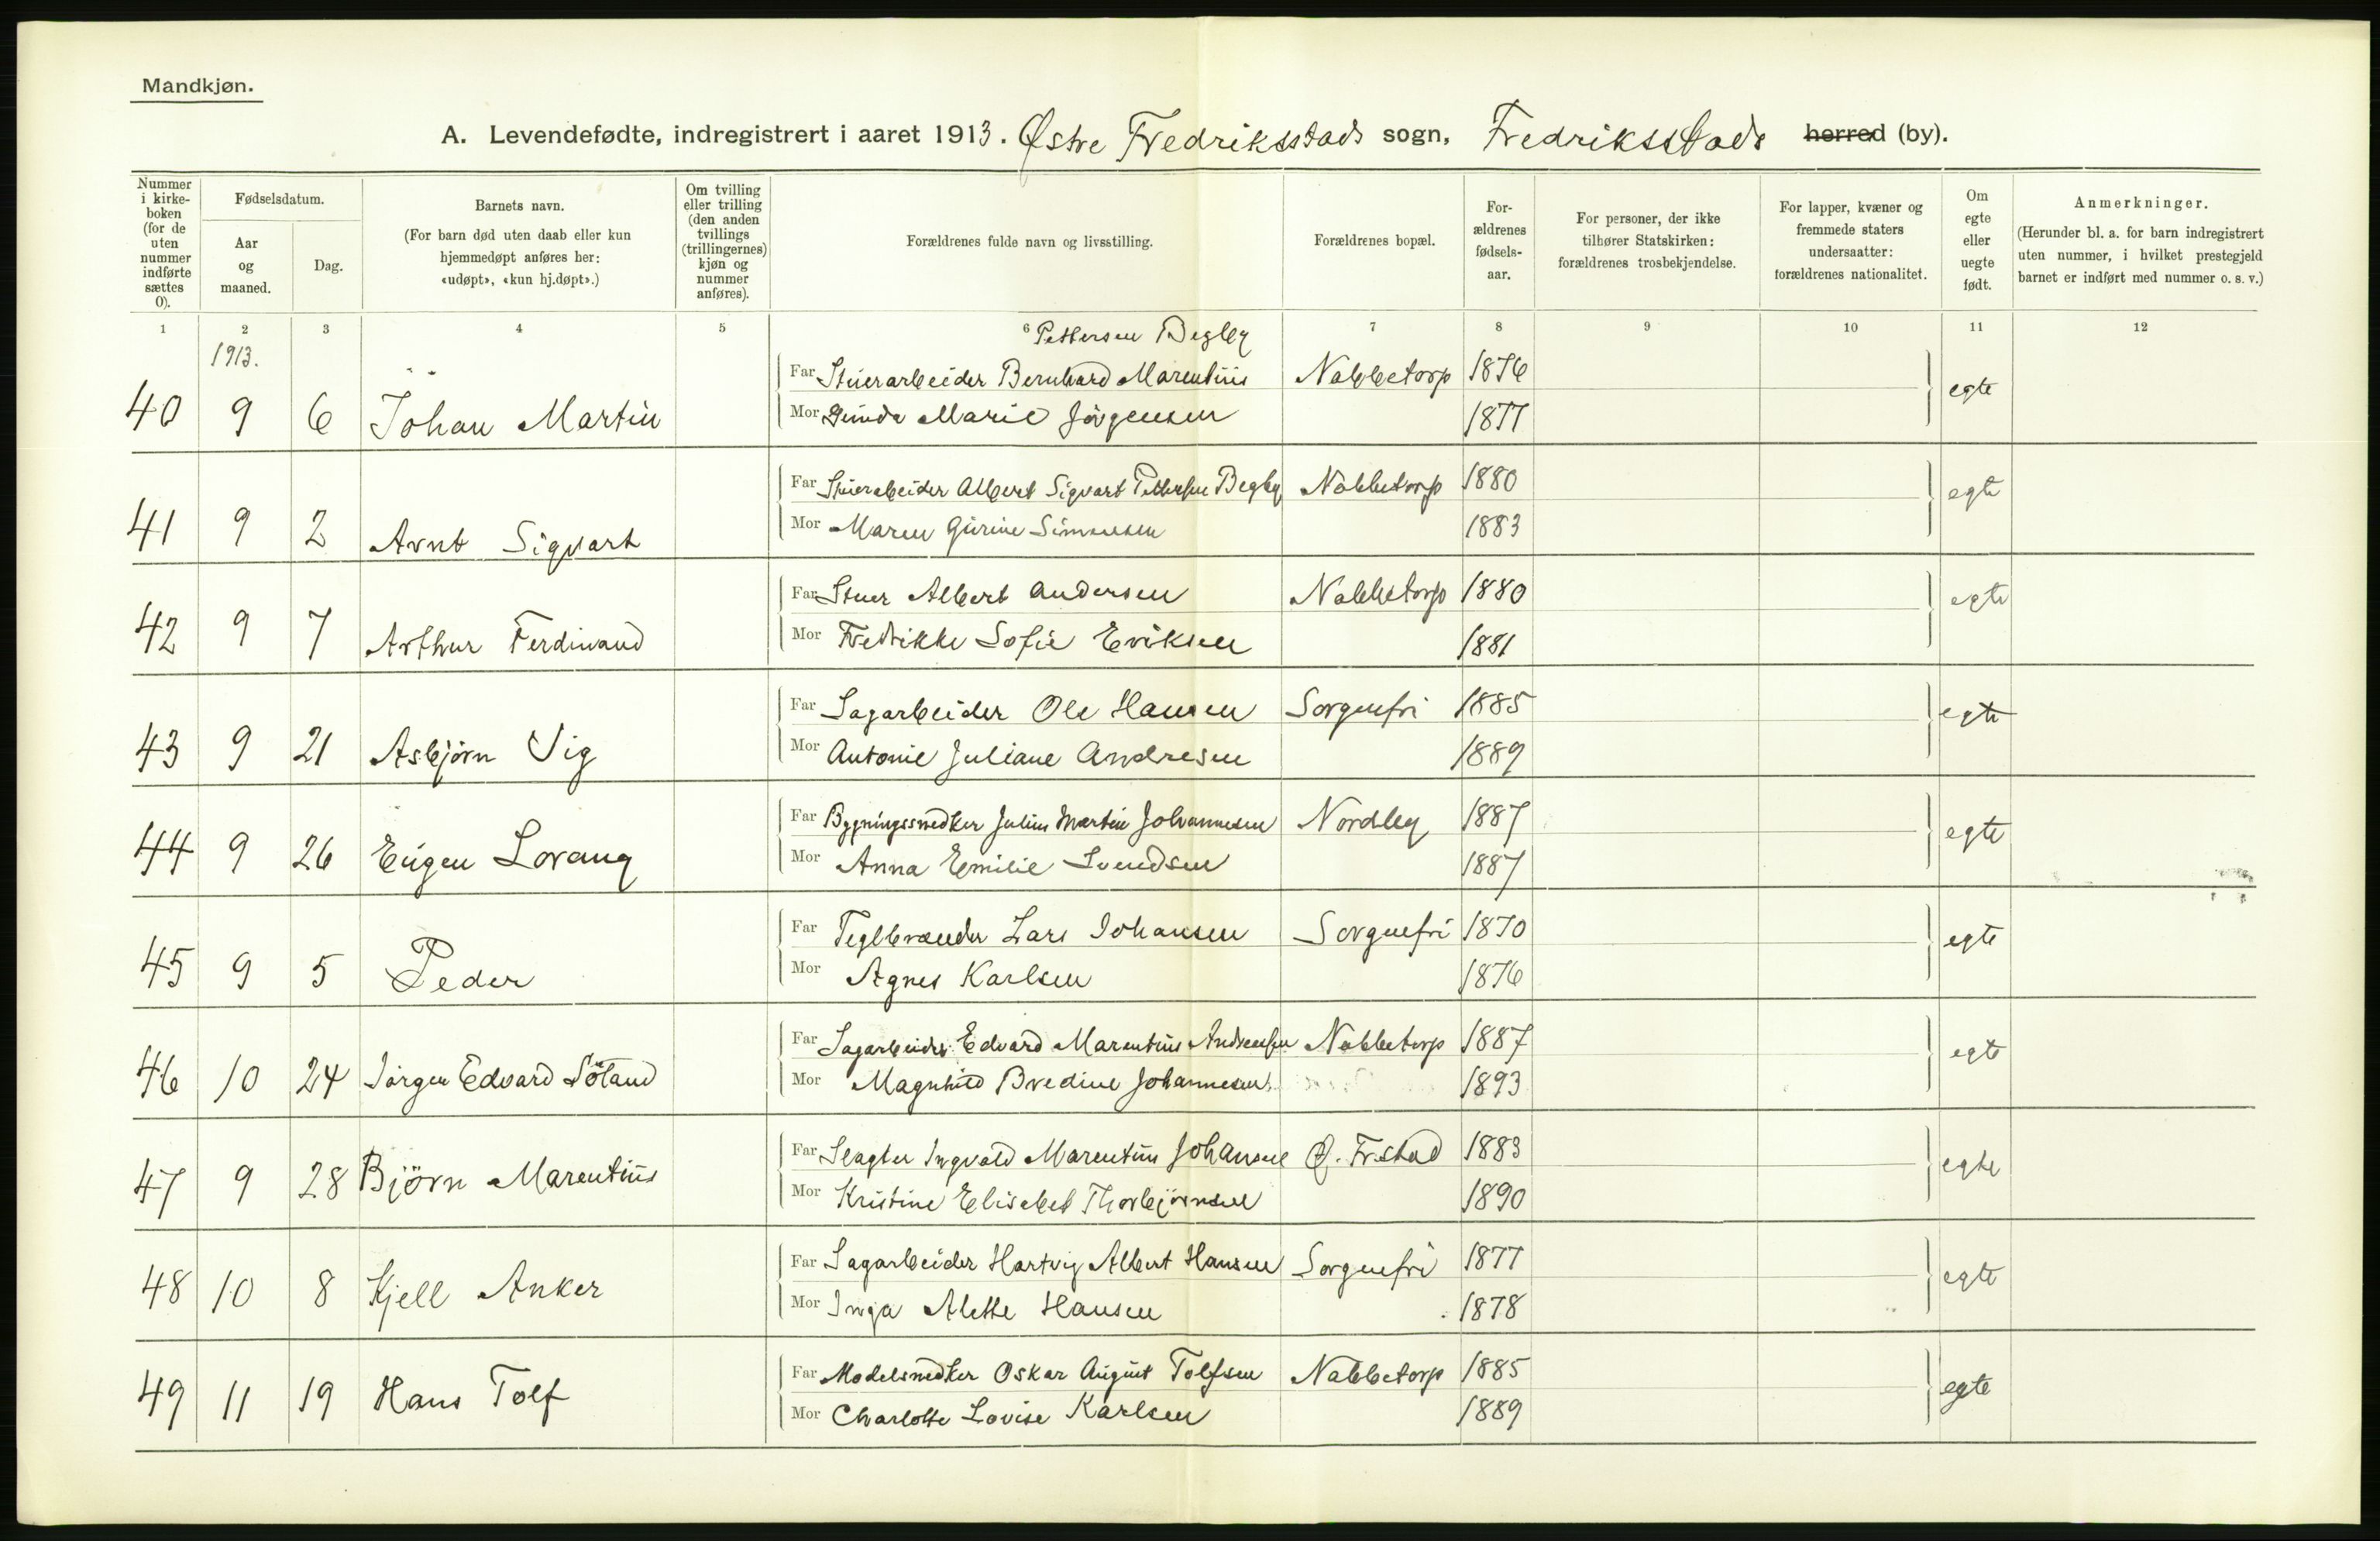 Mandkjøn.
A. Levendefødte, indregistrert i aaret 1913. Østre Fredriksstads sogn, Fredriksstads herred (by).
Nummer i kirkeboken (for de uten nummer indførte sættes 0).
Fødselsdatum.
Aar og maaned.
Dag.
Barnets navn.
(For barn død uten daab eller kun hjemmedøpt anføres her: «udøpt», «kun hj.døpt».)
Om tvilling eller trilling (den anden tvillings (trillingernes) kjøn og nummer anføres).
Forældrenes fulde navn og livsstilling.
Forældrenes bopæl.
Forældrenes fødselsaar.
For personer, der ikke tilhører Statskirken: forældrenes trosbekjendelse.
For lapper, kvæner og fremmede staters undersaatter: forældrenes nationalitet.
Om egte eller uegte født.
Anmerkninger.
(Herunder bl. a. for barn indregistrert uten nummer, i hvilket prestegjeld barnet er indført med nummer o. s. v.)
1 2 3 4 5 6 7 8 9 10 11 12
1913.
Pettersen Begby
Far Stuerarbeider Bernhard Marentius Nabbetorp 1876
40 9 6 Johan Martin egte
Mor Gunda Marie Jörgensen 1877
Far Stuerabeider Albert Sigvart Pettersen Begby Nabbetorp 1880
41 9 2 Arnt Sigvart egte
Mor Maren Gurine Simensen 1883
Far Stuer Albert Andersen Nabbetorp 1880
42 9 7 Arthur Ferdinand egte
Mor Fredrikke Sofie Eriksen 1881
Far Sagarbeider Ole Hansen Sorgenfri 1885
43 9 21 Asbjörn Vig egte
Mor Antonie Juliane Andresen 1889
Far Bygningssnedker Julius Martin Johannesen Nordby 1887
44 9 26 Eugen Lorang egte
Mor Anna Emilie Svendsen 1887
Far Teglbrænder Lars Johansen Sorgenfri 1870
45 9 5 Peder egte
Mor Agnes Karlsen 1876
Far Sagarbeider Edvard Marentius Andreassen Nabbetorp 1887
46 10 24 Jörgen Edvard Götaud egte
Mor Magnhild Bredine Johannesen 1893
Far Slagter Ingvald Marentius Johansen Ø. Fr.stad 1883
47 9 28 Björn Marentius egte
Mor Kristine Elisabet Thorbjörnsen 1890
Far Sagarbeider Hartvig Albert Hansen Sorgenfri 1877
48 10 8 Kjell Anker egte
Mor Inga Alette Hansen 1878
Far Modelsnedker Oskar August Tolfsen Nabbetorp 1885
49 11 19 Hans Tolf egte
Mor Charlotte Lovise Karlsen 1889